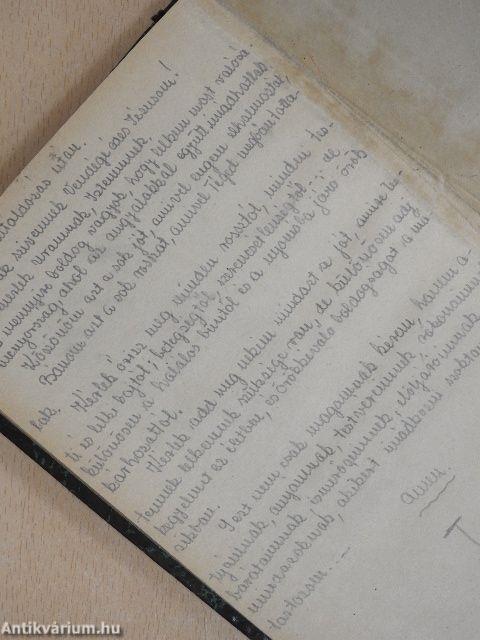 áldozás után.
szívemnek Vendége édes Jézusom!
Uramnak, Istenemnek.
mennyire boldog vagyok, hogy lelkem most valósá-
mennyország, ahol az angyalokkal együtt imádhatlak
Köszönöm azt a sok jót, amivel engem elhalmoztál,
Bánom azt a sok rosszat, amivel Téged megbántotta-
lak.
Kérlek őrizz meg minden rossztól, minden te-
ti és lelki bajtól, betegségtől, szerencsétlenségtől, de
különösen a halálos bűntől és a nyomába járó örök
kárhozattól.
Kérlek add meg nekem mindazt a jót, amire tes-
temnek lelkemnek szüksége van, de különösen adj
kegyelmet az életben, és örökkévaló boldogságot a má-
sikban.
S ezt nem csak magamnak kérem, hanem a-
tyámnak, anyámnak, testvéreimnek rokonaimnak
barátaimnak ismerőseimnek, jótevőimnek
mindazoknak, akikért imádkozni szoktam
tartozom. ...
Amen.
T
Antikvárium.hu